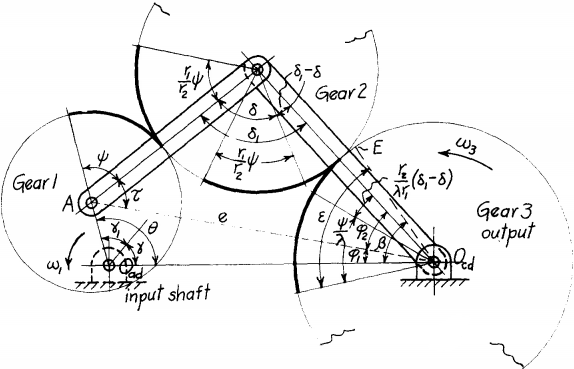 r₁/r₂ ψ
δ₁-δ
Gear 2
δ
δ₁
r₁/r₂ ψ
E
ω₃
Gear 1
ψ
τ
A
r₂/λr₁ (δ₁-δ)
e
Gear 3
output
γ₁
γ
θ
ε
ψ/λ
φ₂
φ₁
β
ω₁
O_ad
O_cd
input shaft